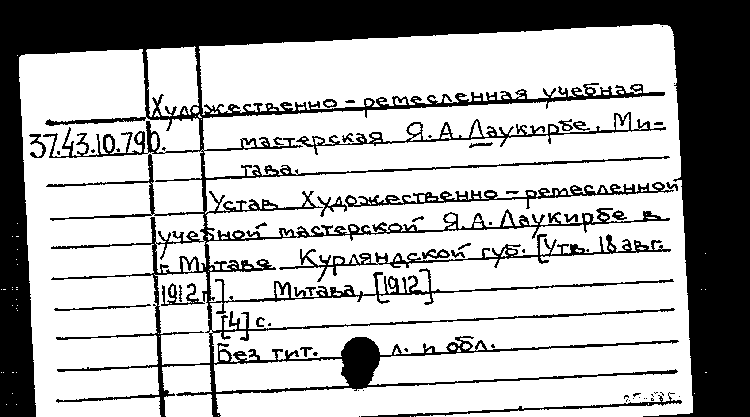 Художественно-ремесленная учебная
37.43.10.790. мастерская Я.А. Лаукирбе. Ми-
тава.
Устав Художественно-ремесленной
учебной мастерской Я.А. Лаукирбе в
г. Митаве Курляндской губ. [Утв. 18 авг.
1912 г.]. Митава, [1912].
[4] с.
Без тит. л. и обл.